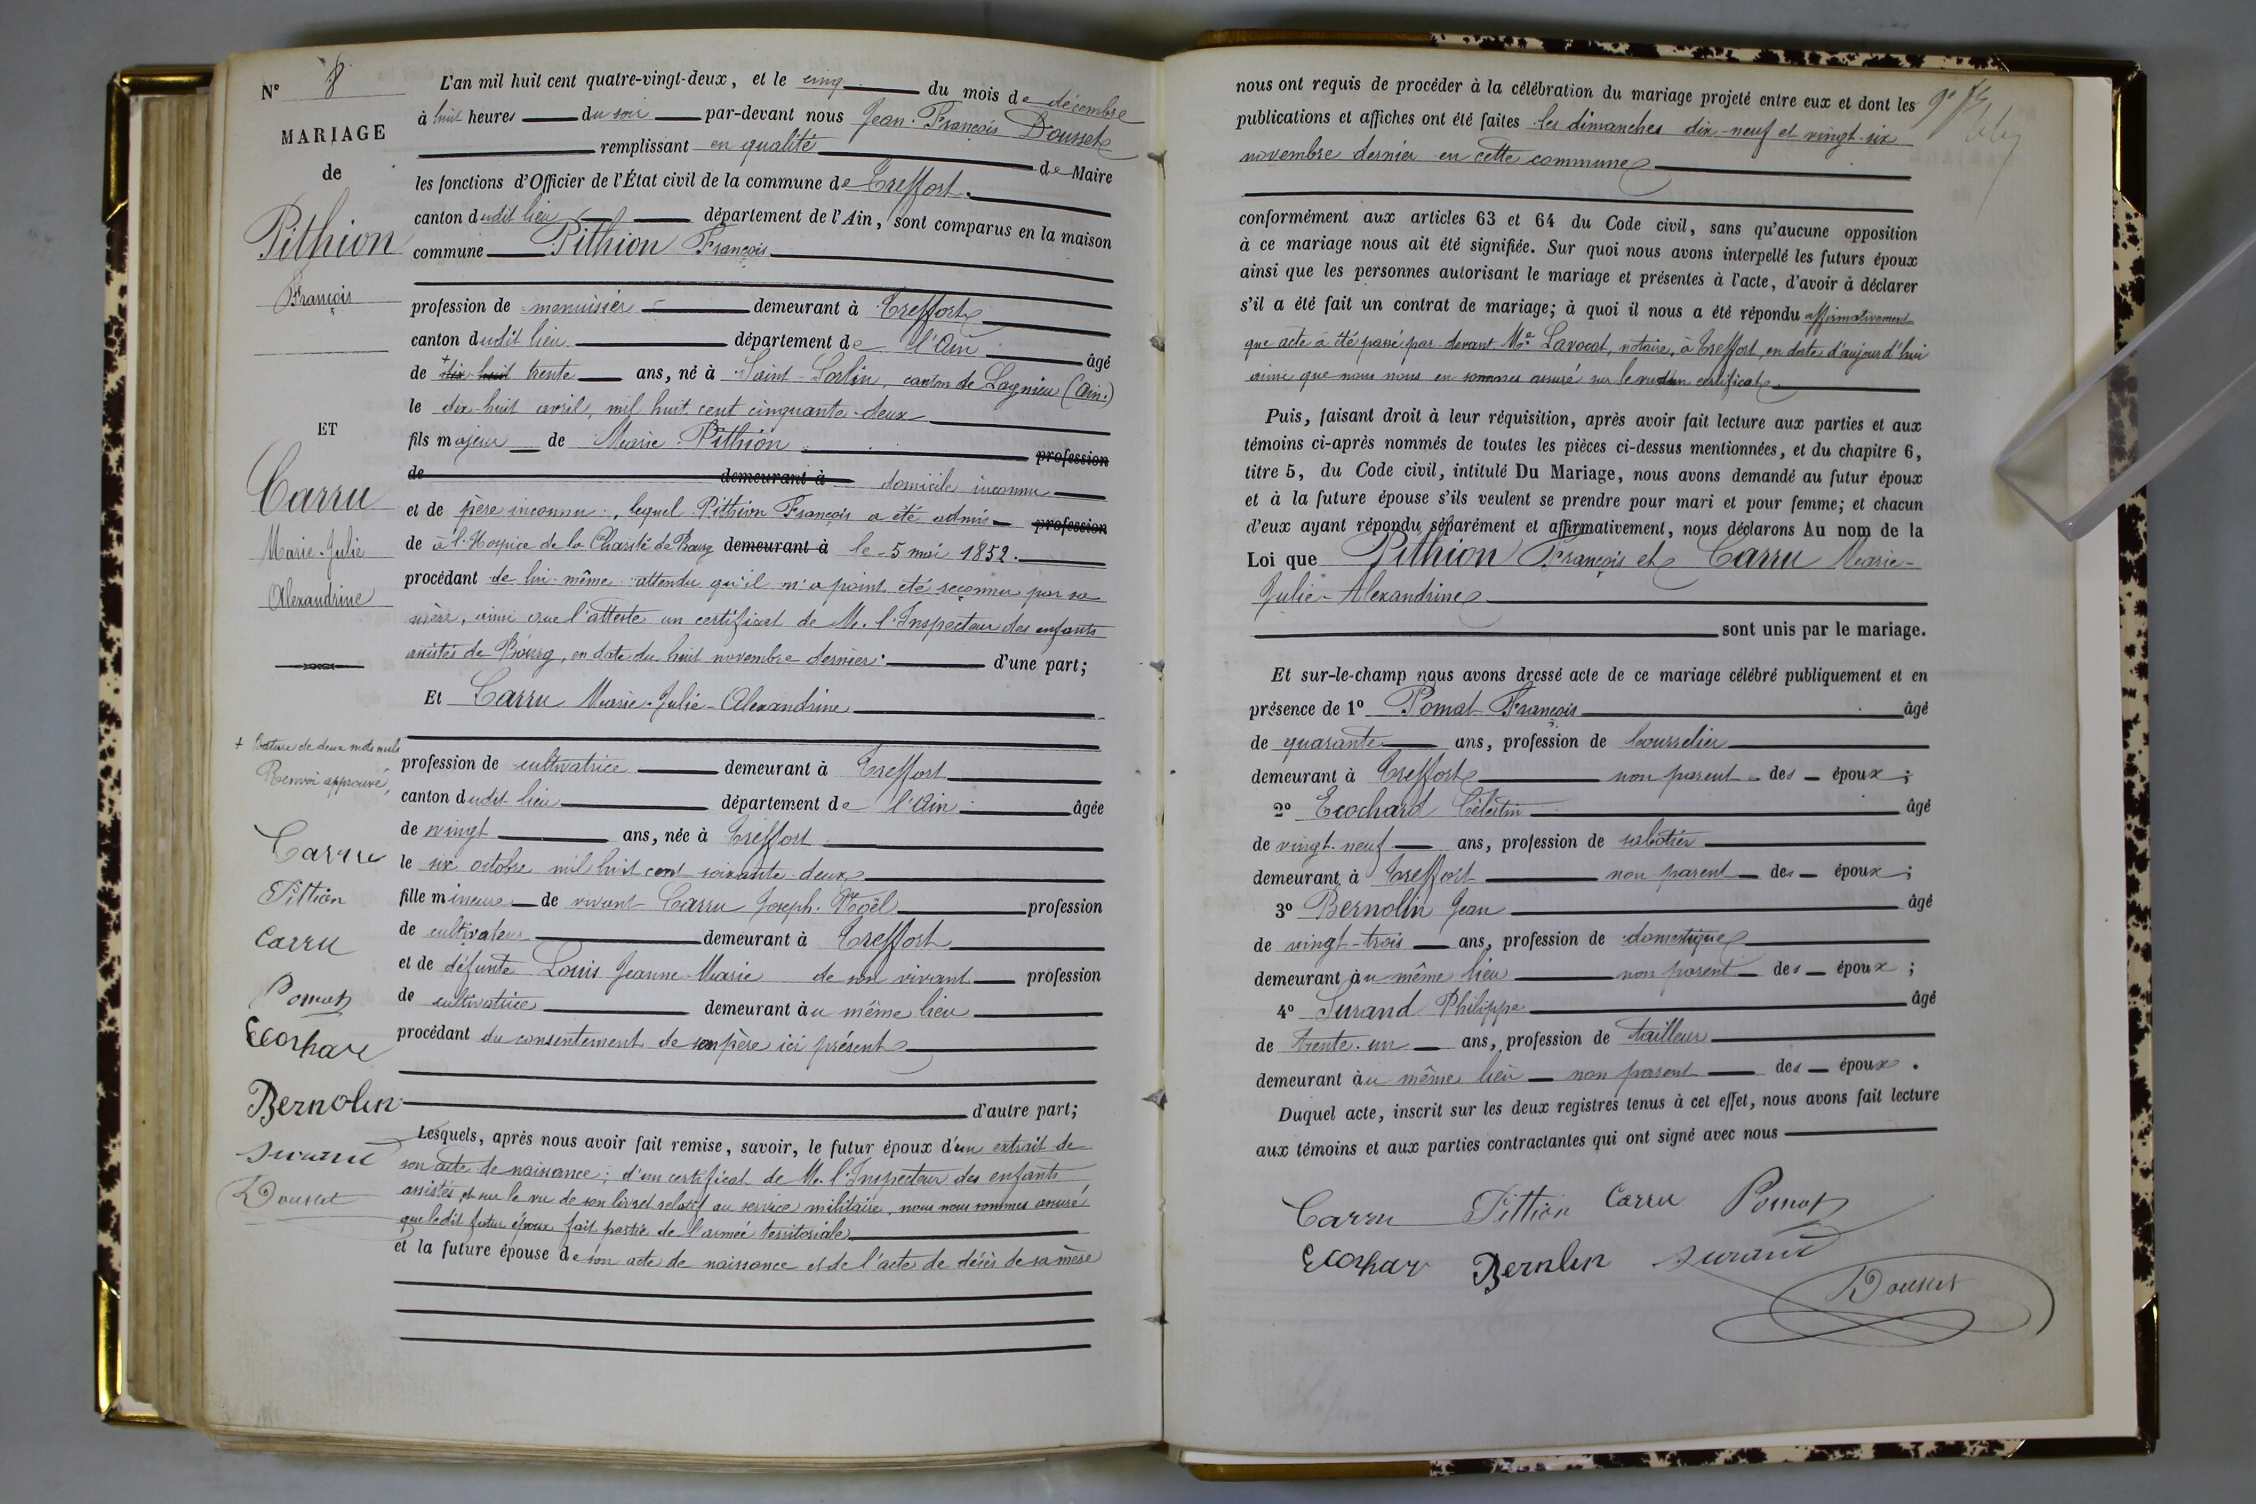 N° 8
MARIAGE
de
Pithion
François
ET
Carru
Marie-Julie
Alexandrine
+ Rature de deux mots nuls
Renvoi approuvé,
Carru
Pittion
Carru
Pomat
Ecochar
Bernolin
Surand
Dousset
L'an mil huit cent quatre-vingt-deux, et le cinq du mois de décembre
à huit heures du soir par-devant nous Jean-François Dousset
remplissant en qualité de Maire
les fonctions d'Officier de l'État civil de la commune de Treffort.
canton dudit lieu département de l'Ain, sont comparus en la maison
commune Pithion François
profession de menuisier demeurant à Treffort
canton dudit lieu département de l'Ain âgé
de + dix-huit trente ans, né à Saint-Sorlin, canton de Lagnieu (Ain.)
le dix-huit avril, mil huit cent cinquante-deux
fils majeur de Marie Pithion profession
de demeurant à domicile inconnu
et de père inconnu, lequel Pithion François a été admis profession
de à l'Hospice de la Charité de Bourg demeurant à le 5 mai 1852.
procédant de lui-même attendu qu'il n'a point été reconnu par sa
mère, ainsi que l'atteste un certificat de M. l'Inspecteur des enfants
assistés de Bourg, en date du huit novembre dernier. d'une part;
Et Carru Marie-Julie-Alexandrine
profession de cultivatrice demeurant à Treffort
canton dudit lieu département de l'Ain âgée
de vingt ans, née à Treffort
le six octobre mil huit cent soixante-deux
fille mineure de vivant Carru Joseph-Noël profession
de cultivateur demeurant à Treffort
et de défunte Louis Jeanne-Marie de son vivant profession
de cultivatrice demeurant au même lieu
procédant du consentement de son père ici présent
d'autre part;
Lesquels, après nous avoir fait remise, savoir, le futur époux d'un extrait de
son acte de naissance; d'un certificat de M. l'Inspecteur des enfants
assistés, et sur le vu de son livret relatif au service militaire, nous nous sommes assuré
que ledit futur époux fait partie de l'armée territoriale
et la future épouse de son acte de naissance et de l'acte de décès de sa mère
nous ont requis de procéder à la célébration du mariage projeté entre eux et dont les
publications et affiches ont été faites les dimanches dix-neuf et vingt-six
novembre dernier en cette commune
conformément aux articles 63 et 64 du Code civil, sans qu'aucune opposition
à ce mariage nous ait été signifiée. Sur quoi nous avons interpellé les futurs époux
ainsi que les personnes autorisant le mariage et présentes à l'acte, d'avoir à déclarer
s'il a été fait un contrat de mariage; à quoi il nous a été répondu affirmativement
que acte a été passé par devant Me Lavocat, notaire, à Treffort, en date d'aujourd'hui
ainsi que nous nous en sommes assuré sur le vu du certificat
Puis, faisant droit à leur réquisition, après avoir fait lecture aux parties et aux
témoins ci-après nommés de toutes les pièces ci-dessus mentionnées, et du chapitre 6,
titre 5, du Code civil, intitulé Du Mariage, nous avons demandé au futur époux
et à la future épouse s'ils veulent se prendre pour mari et pour femme; et chacun
d'eux ayant répondu séparément et affirmativement, nous déclarons Au nom de la
Loi que Pithion François et Carru Marie-
Julie-Alexandrine
sont unis par le mariage.
Et sur-le-champ nous avons dressé acte de ce mariage célébré publiquement et en
présence de 1° Pomat François âgé
de quarante ans, profession de bourrelier
demeurant à Treffort non parent des époux;
2° Ecochard Célestin âgé
de vingt-neuf ans, profession de sabotier
demeurant à Treffort non parent des époux;
3° Bernolin Jean âgé
de vingt-trois ans, profession de domestique
demeurant au même lieu non parent des époux;
4° Surand Philippe âgé
de trente-un ans, profession de tailleur
demeurant au même lieu non parent des époux.
Duquel acte, inscrit sur les deux registres tenus à cet effet, nous avons fait lecture
aux témoins et aux parties contractantes qui ont signé avec nous
Carru Pittion Carru Pomat
Ecochar Bernolin Surand
Dousset